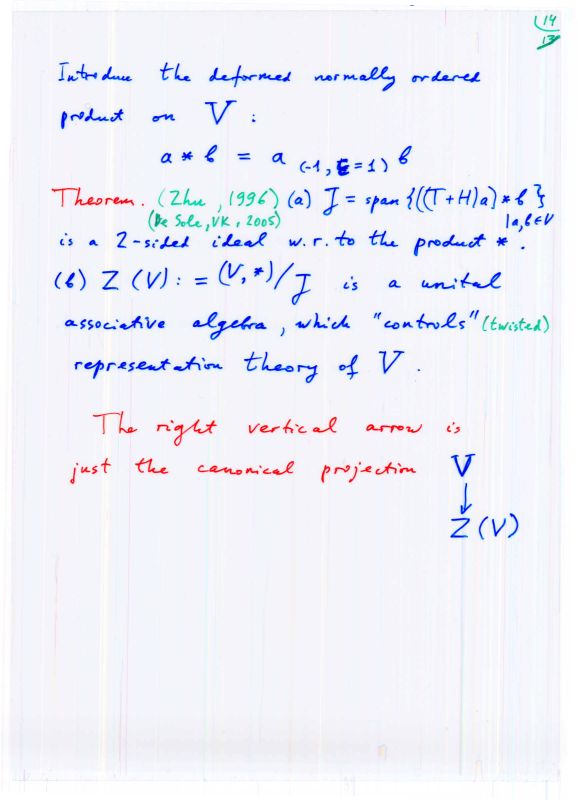 14
13
Introduce the deformed normally ordered
product on V :
a * b = a (-1, ε=1) b
Theorem. (Zhu, 1996) (a) J = span {((T+H)a) * b}
(De Sole, VK, 2005) |a,b∈V
is a 2-sided ideal w.r. to the product *.
(b) Z(V) := (V,*)/J is a unital
associative algebra, which "controls" (twisted)
representation theory of V.
The right vertical arrow is
just the canonical projection V
↓
Z(V)